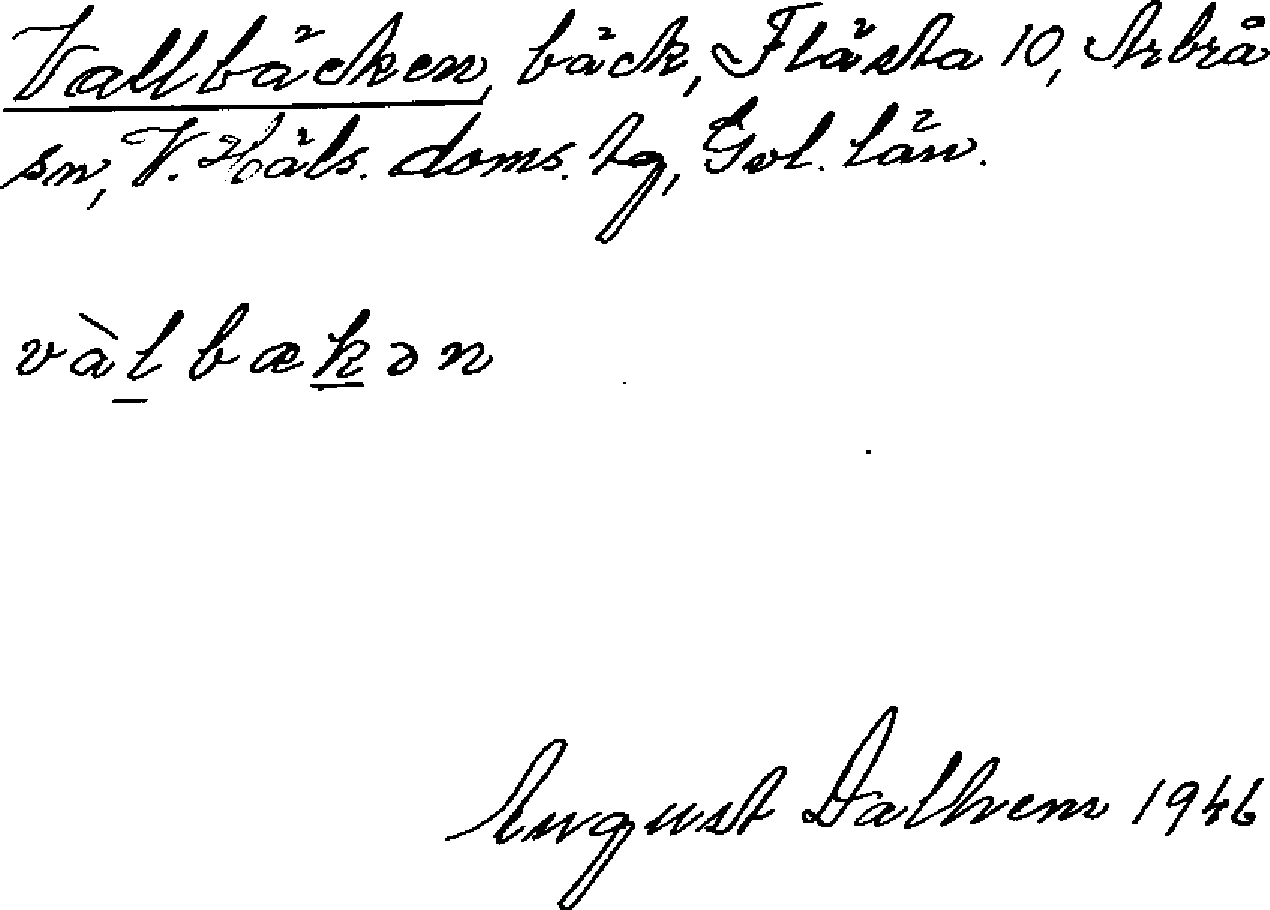 Vallbäcken, bäck, Flästa 10, Arbrå
sn, V. Häls. doms. tg, Gvl. län.
vàlbækən
August Dalhem 1946